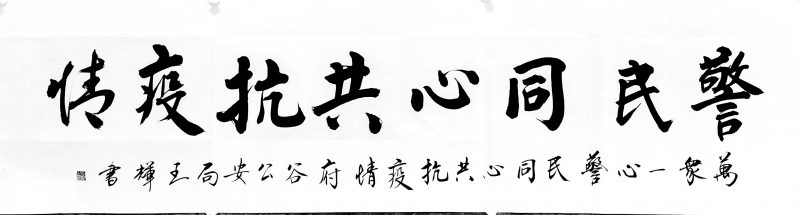 警民同心共抗疫情
萬衆一心警民同心共抗疫情府谷公安局王輝書